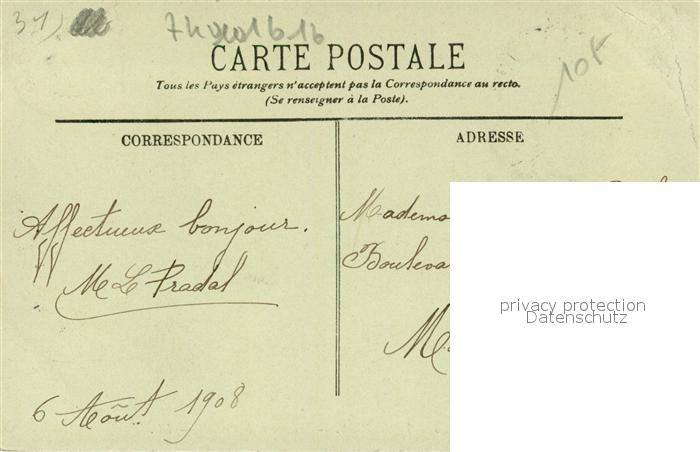 31)
CARTE POSTALE
10F
Tous les Pays étrangers n'acceptent pas la Correspondance au recto.
(Se renseigner à la Poste).
CORRESPONDANCE
ADRESSE
Affectueux bonjour.
M L Pradal
6 Août 1908
Mademo
Bouleva
M
privacy protection
Datenschutz